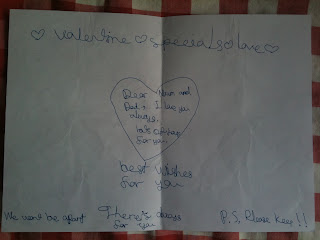 ♡ valentine ♡ specials ♡ love ♡
Dear Mum and
Dad I love you
always.
for you
best wishes
for you
We wont be apart
There's always
for you
P.S. Please keep!!